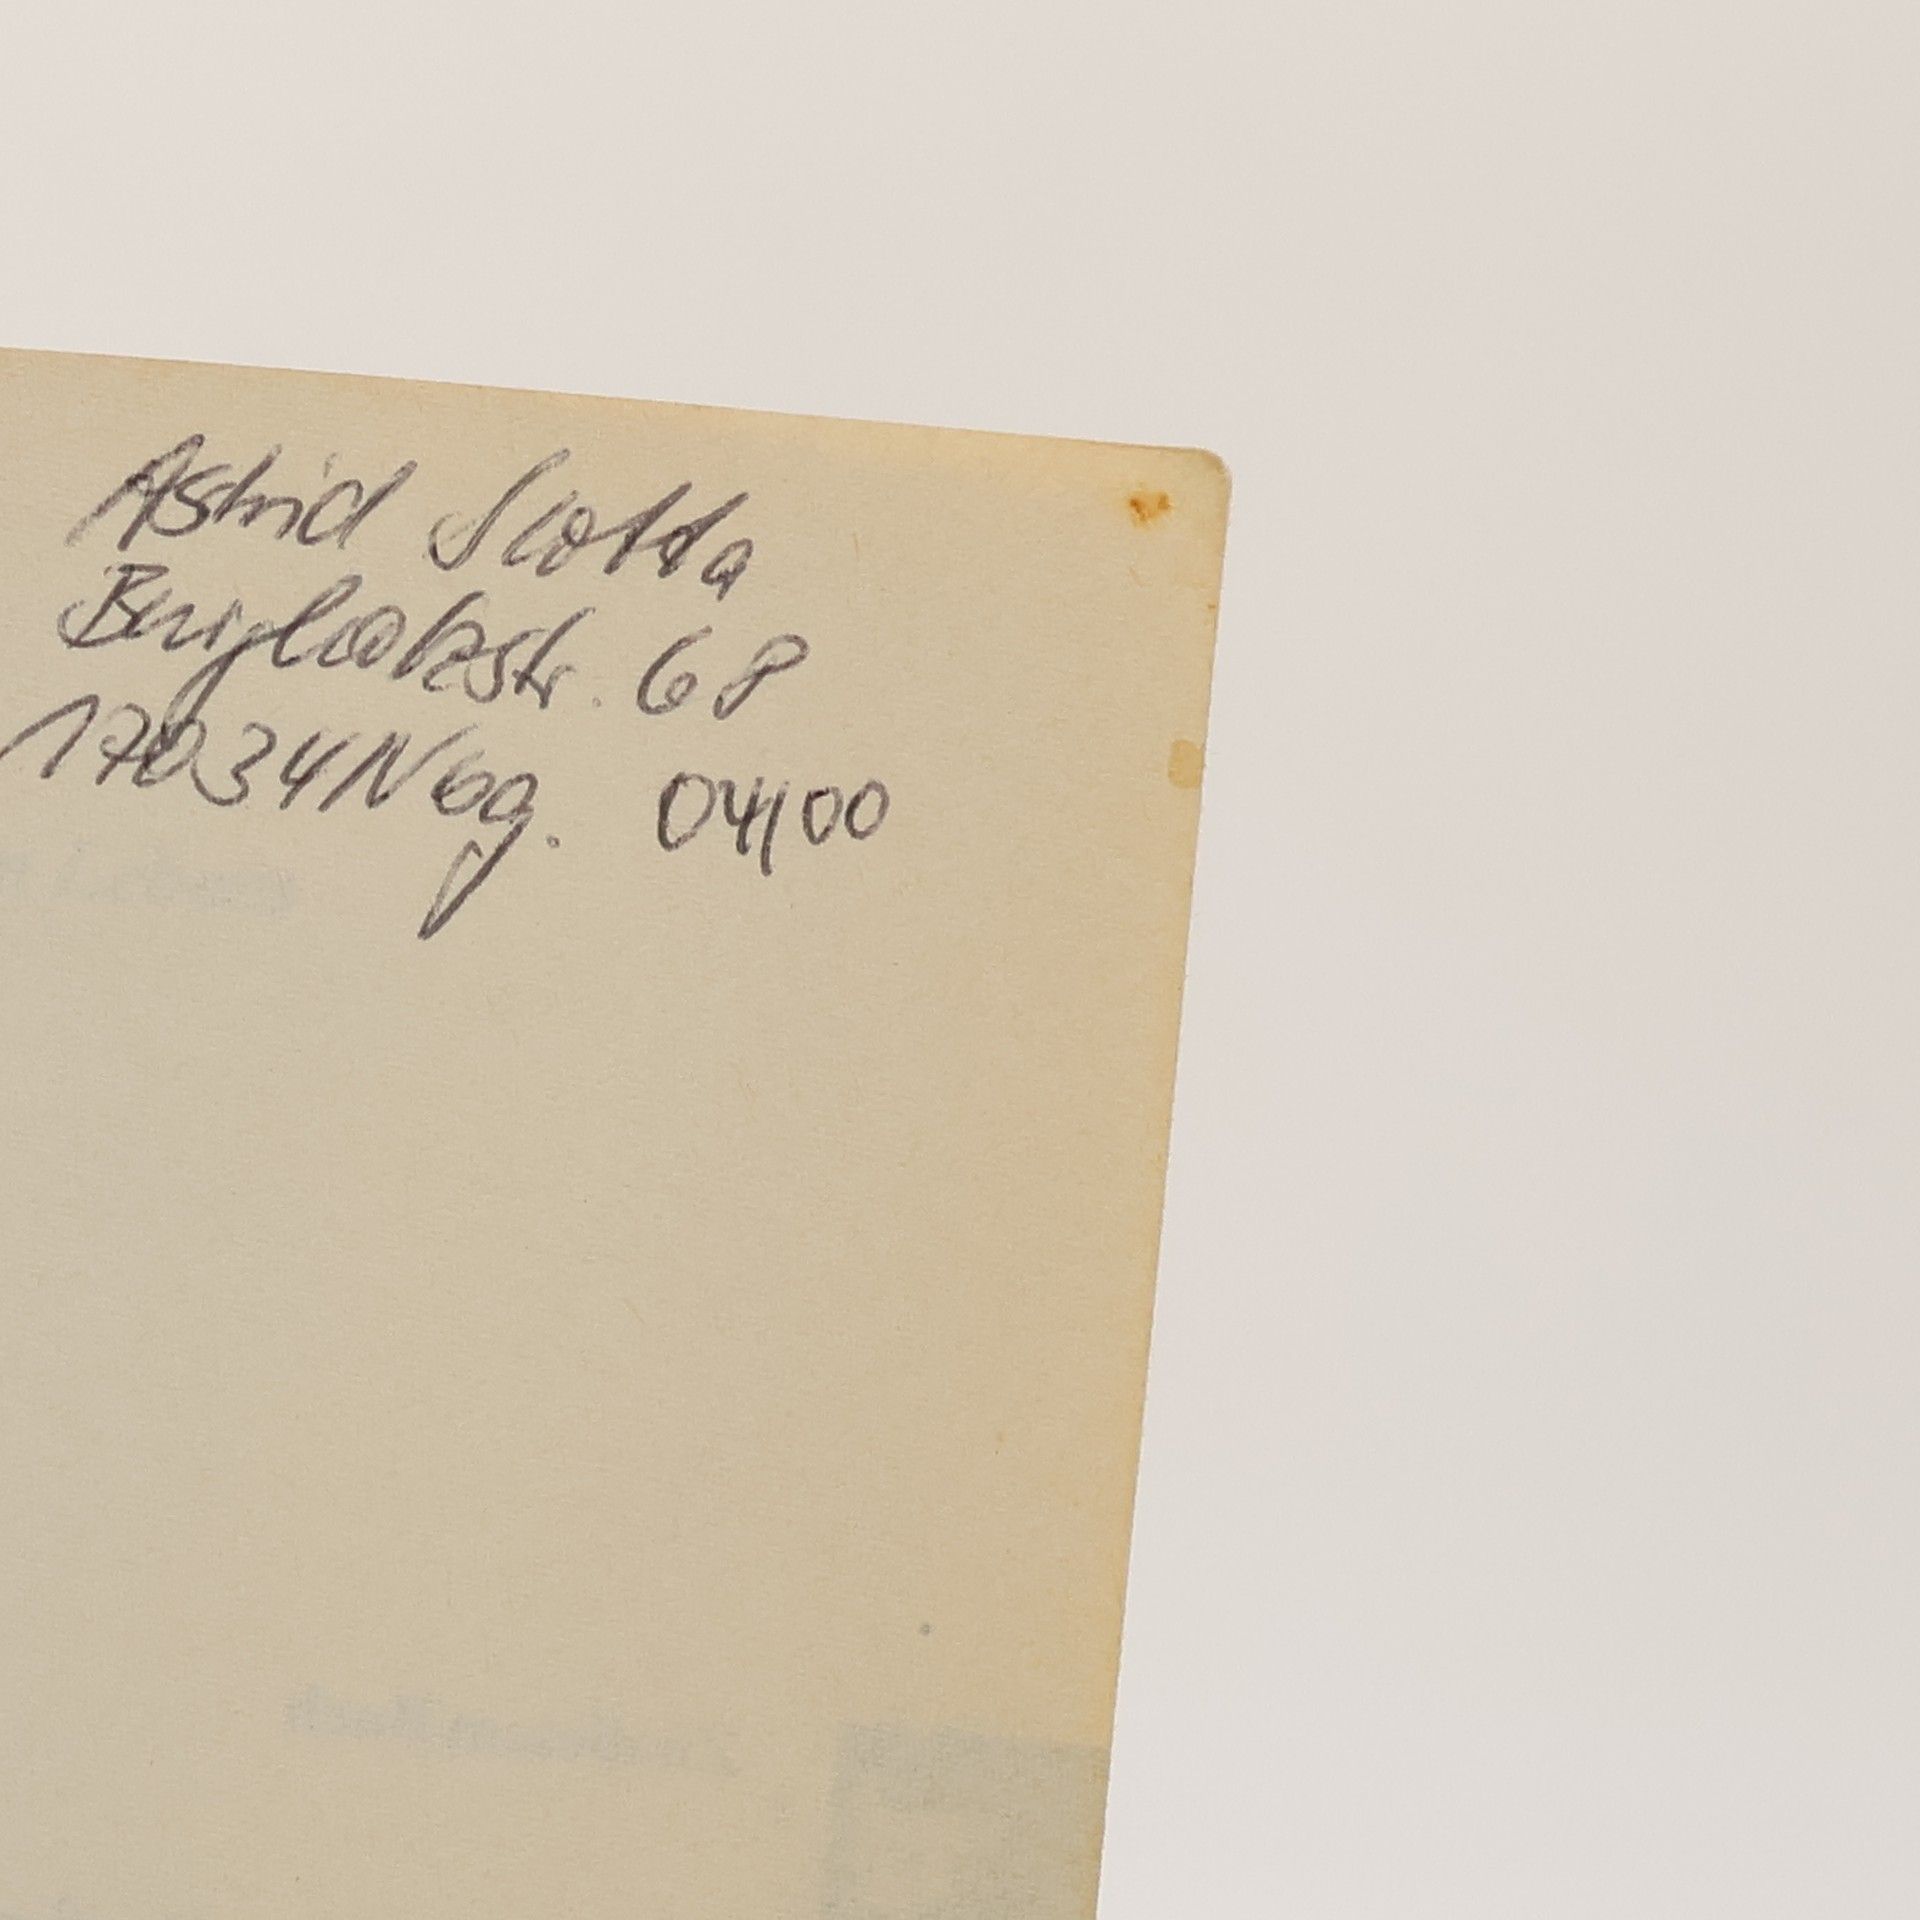 Astrid Scotta
Burgholzstr. 68
17034 Nbg. 04/00